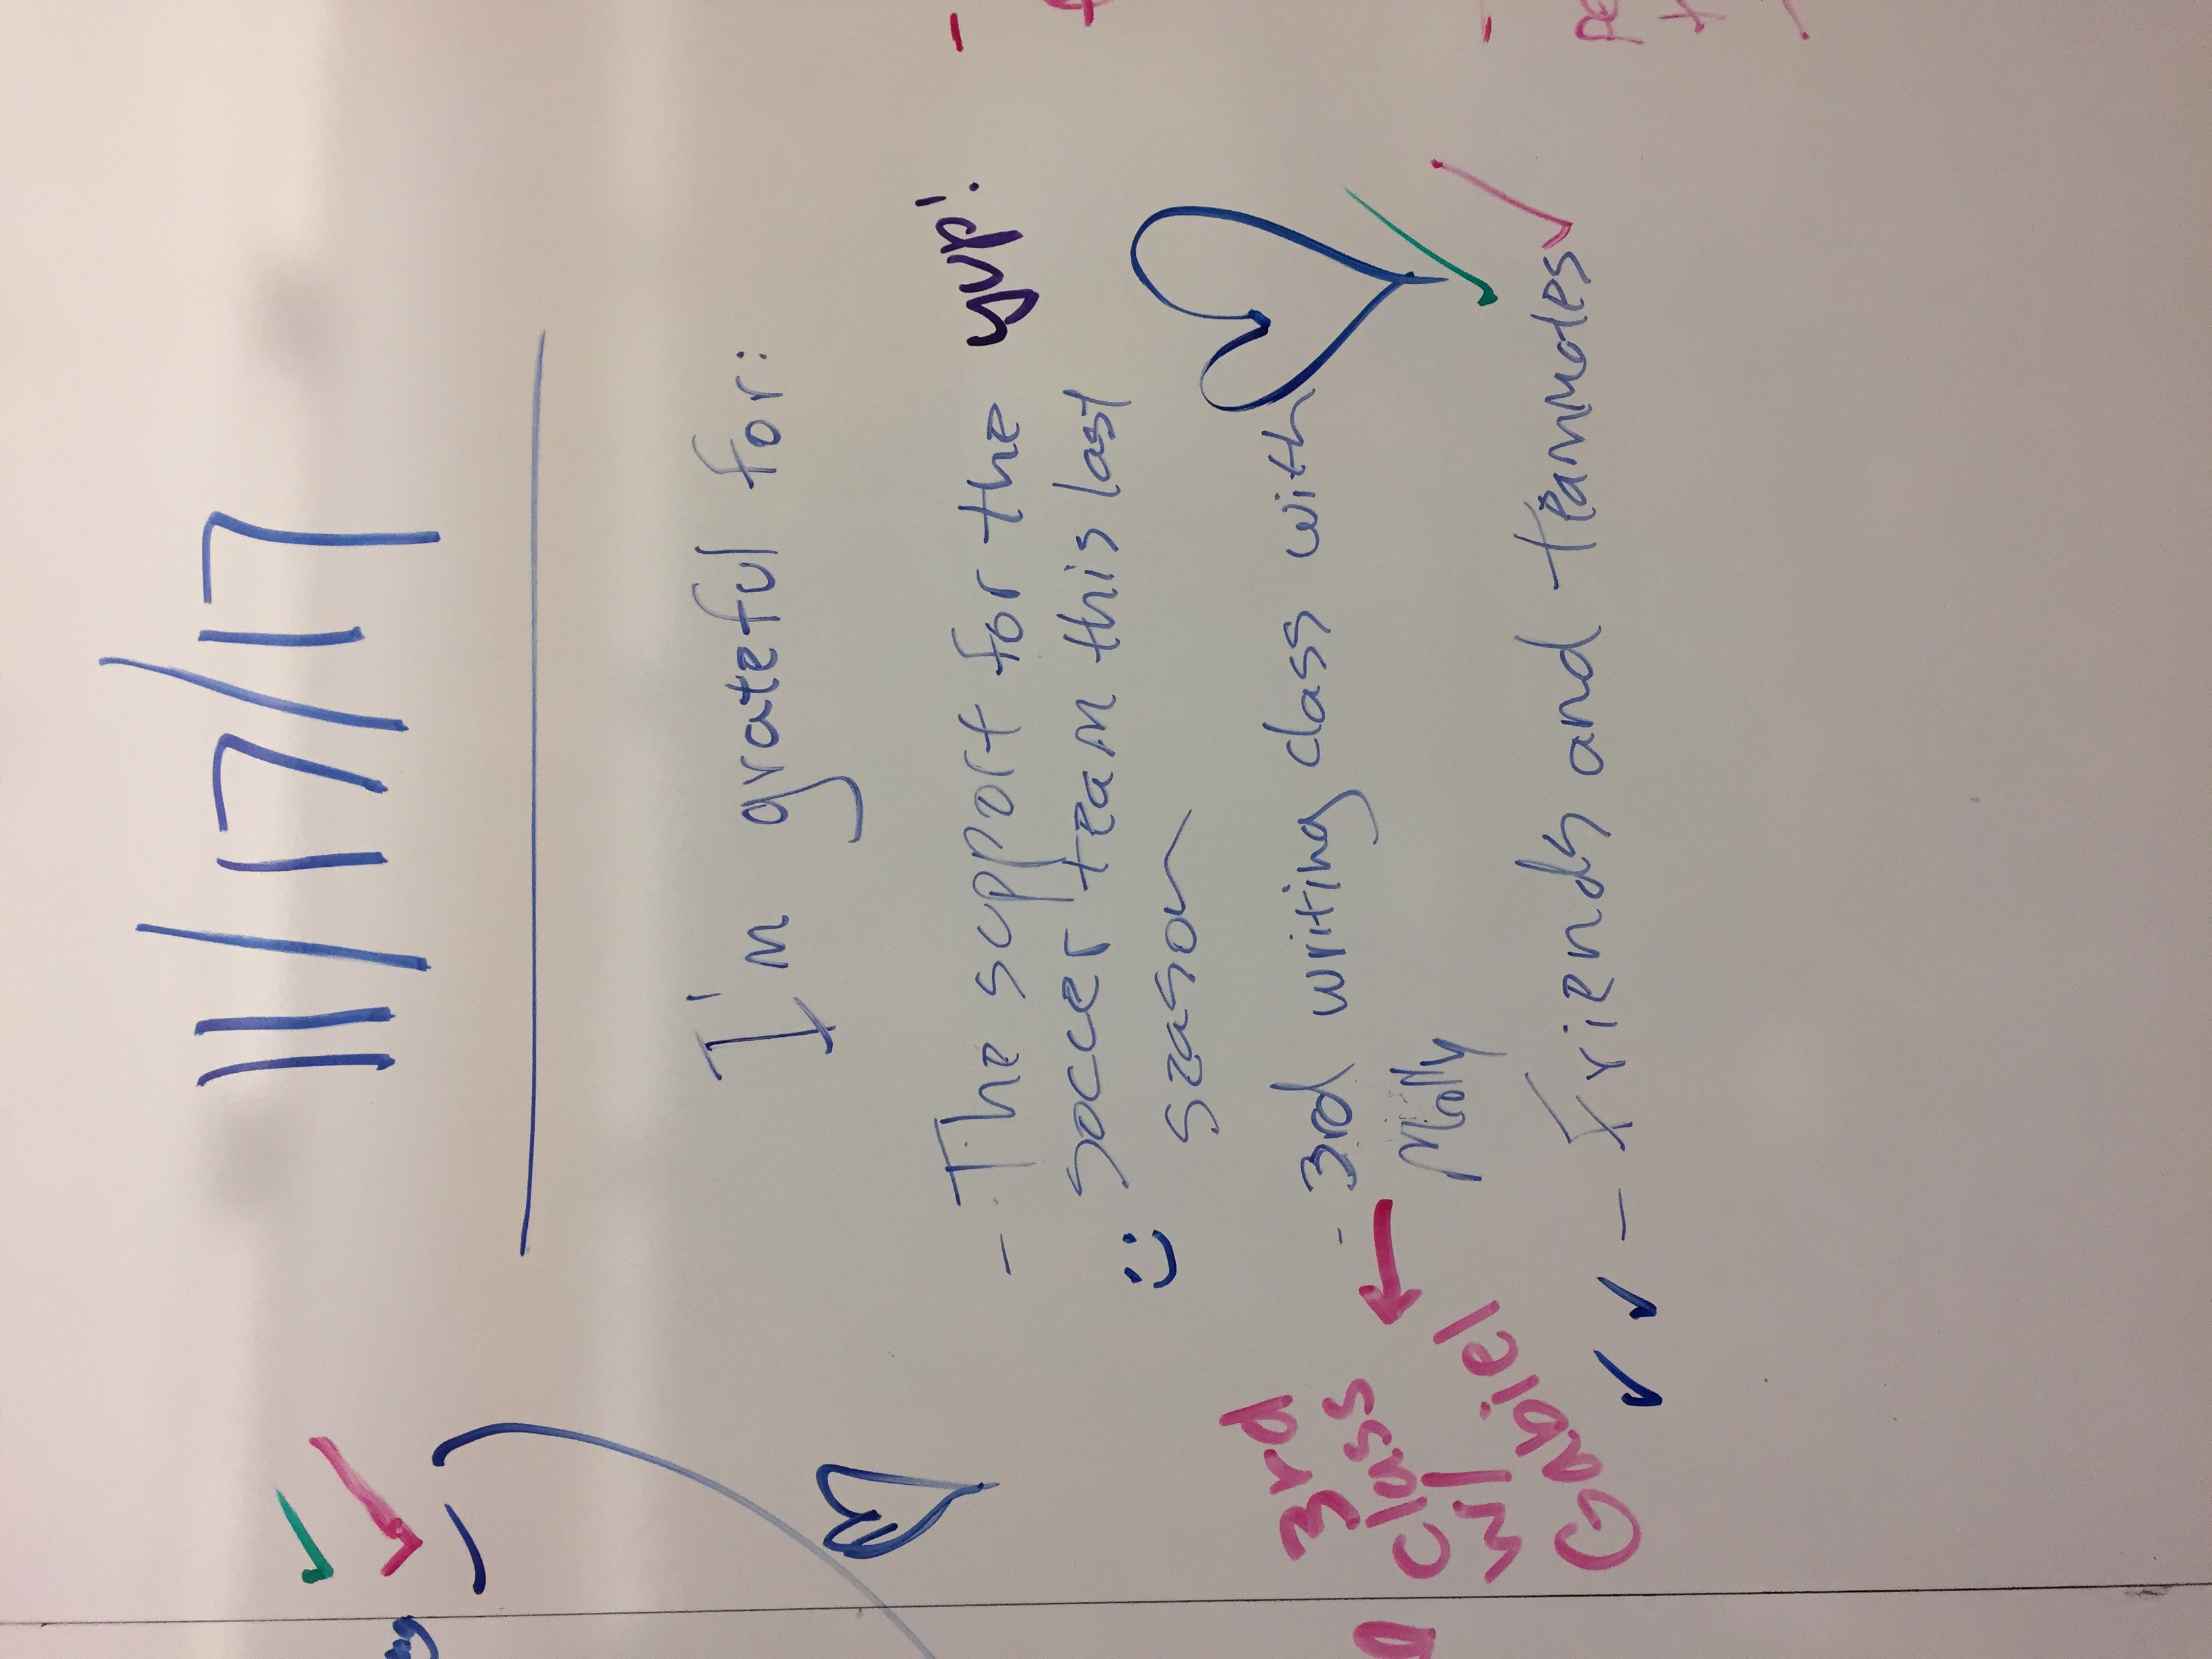 11/17/17
I'm grateful for:
- The support for the yup!
soccer team this last
season
:)
- 3rd writing class with
Molly
- Friends and teammates
3rd
class
w/
Gabiel